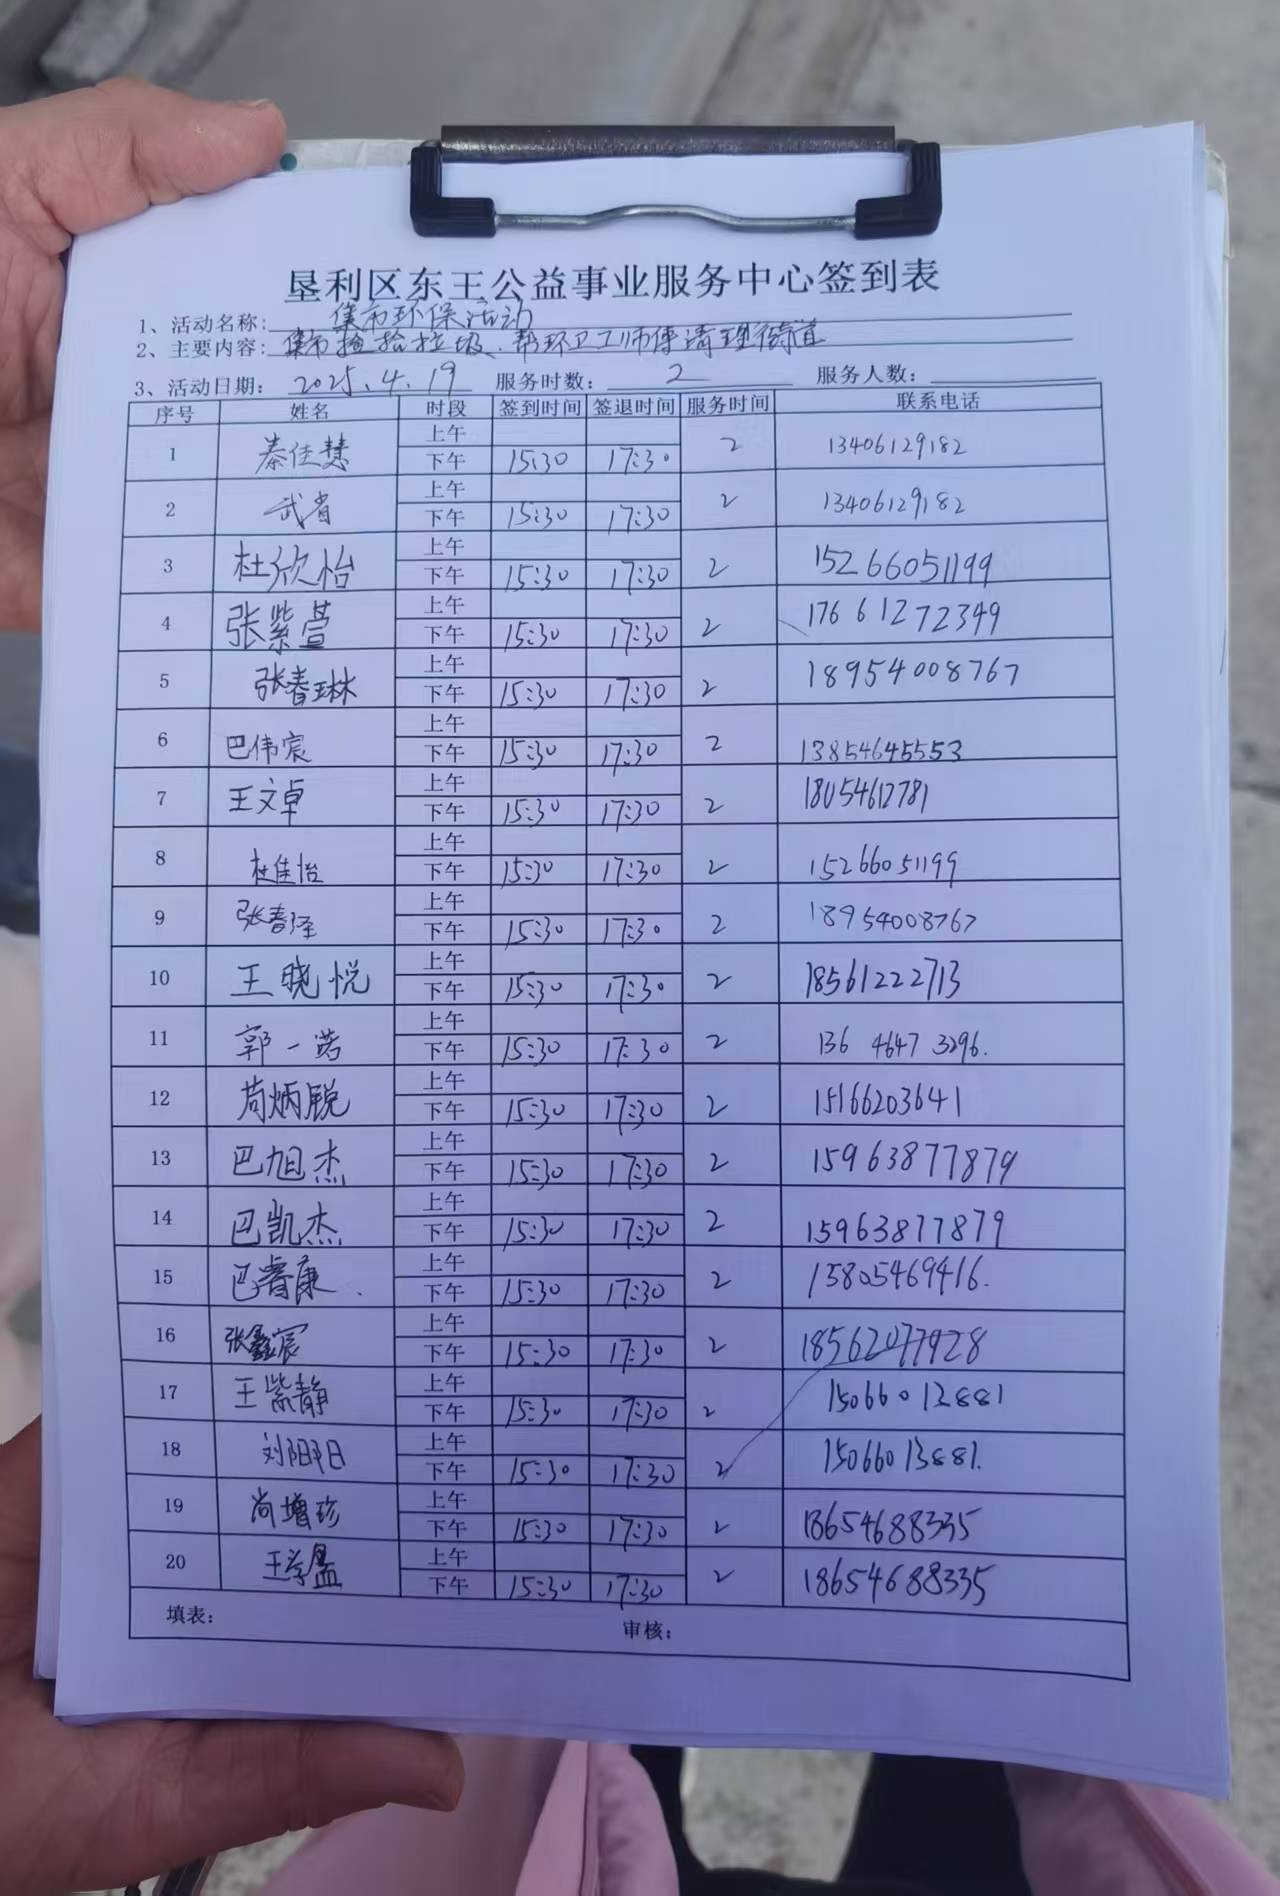 垦利区东王公益事业服务中心签到表
1、活动名称: 集市环保活动
2、主要内容: 集市捡拾垃圾、帮环卫工师傅清理街道
3、活动日期: 2025.4.19 服务时数: 2 服务人数:
序号 姓名 时段 签到时间 签退时间 服务时间 联系电话
上午
1 秦佳慧 下午 15:30 17:30 2 13406129182
上午
2 武省 下午 15:30 17:30 2 13406129182
上午
3 杜欣怡 下午 15:30 17:30 2 15266051199
上午
4 张紫萱 下午 15:30 17:30 2 17661272349
上午
5 张春琳 下午 15:30 17:30 2 18954008767
上午
6 巴伟宸 下午 15:30 17:30 2 13854645553
上午
7 王文卓 下午 15:30 17:30 2 18054612781
上午
8 杜佳怡 下午 15:30 17:30 2 15266051199
上午
9 张春泽 下午 15:30 17:30 2 18954008767
上午
10 王晓悦 下午 15:30 17:30 2 18561222713
上午
11 郭一诺 下午 15:30 17:30 2 136 4647 3296.
上午
12 苟炳锐 下午 15:30 17:30 2 15166203641
上午
13 巴旭杰 下午 15:30 17:30 2 15963877879
上午
14 巴凯杰 下午 15:30 17:30 2 15963877879
上午
15 巴睿康. 下午 15:30 17:30 2 15805469416.
上午
16 张鑫宸 下午 15:30 17:30 2 18562077928
上午
17 王紫静 下午 15:30 17:30 2 15066013881
上午
18 刘阳阳 下午 15:30 17:30 2 15066013881.
上午
19 尚增珍 下午 15:30 17:30 2 18654688335
上午
20 王学盈 下午 15:30 17:30 2 18654688335
填表: 审核: